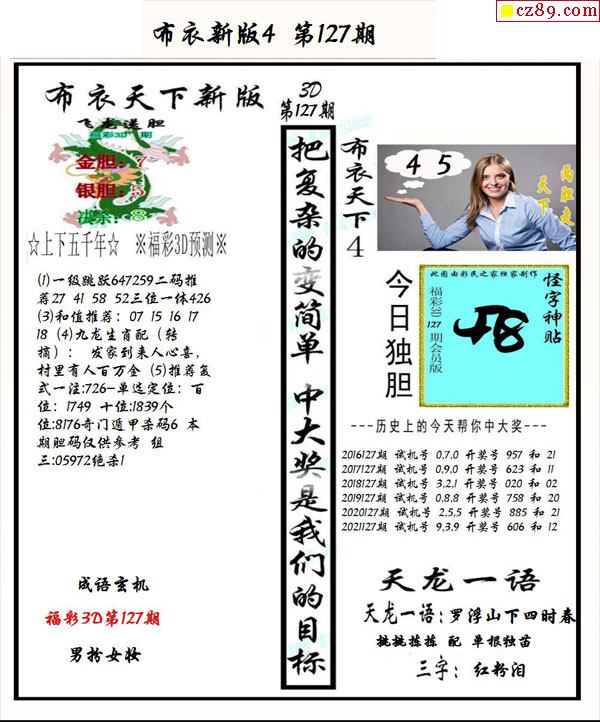 cz89.com
布衣新版4 第127期
布衣天下新版
飞龙送胆
福彩3D 期
金胆：7
银胆：5
决杀：8
☆上下五千年☆ ※福彩3D预测※
(1)一级跳跃647259二码推
荐27 41 58 52三位一体426
(3)和值推荐：07 15 16 17
18 (4)九龙生肖配（转
摘）： 发家到来人心喜，
村里有人百万金 (5)推荐复
式一注:726-单选定位：百
位：1749 十位:1839个
位:8176奇门遁甲杀码6 本
期胆码仅供参考 组
三:05972绝杀1
成语玄机
福彩3D第127期
男扮女妆
3D
第127期
把复杂的变简单 中大奖是我们的目标
布衣天下4
4 5
两胆走
天下
今日独胆
此图由彩民之家独家制作
福彩3D 127 期会员版
怪字神贴
---历史上的今天帮你中大奖---
2016127期 试机号 0,7,0 开奖号 957 和 21
2017127期 试机号 0,9,0 开奖号 623 和 11
2018127期 试机号 3,2,1 开奖号 020 和 02
2019127期 试机号 0,8,8 开奖号 758 和 20
2020127期 试机号 2,5,5 开奖号 885 和 21
2021127期 试机号 9,3,9 开奖号 606 和 12
天龙一语
天龙一语：罗浮山下四时春
挑挑拣拣 配 单根独苗
三字： 红粉泪